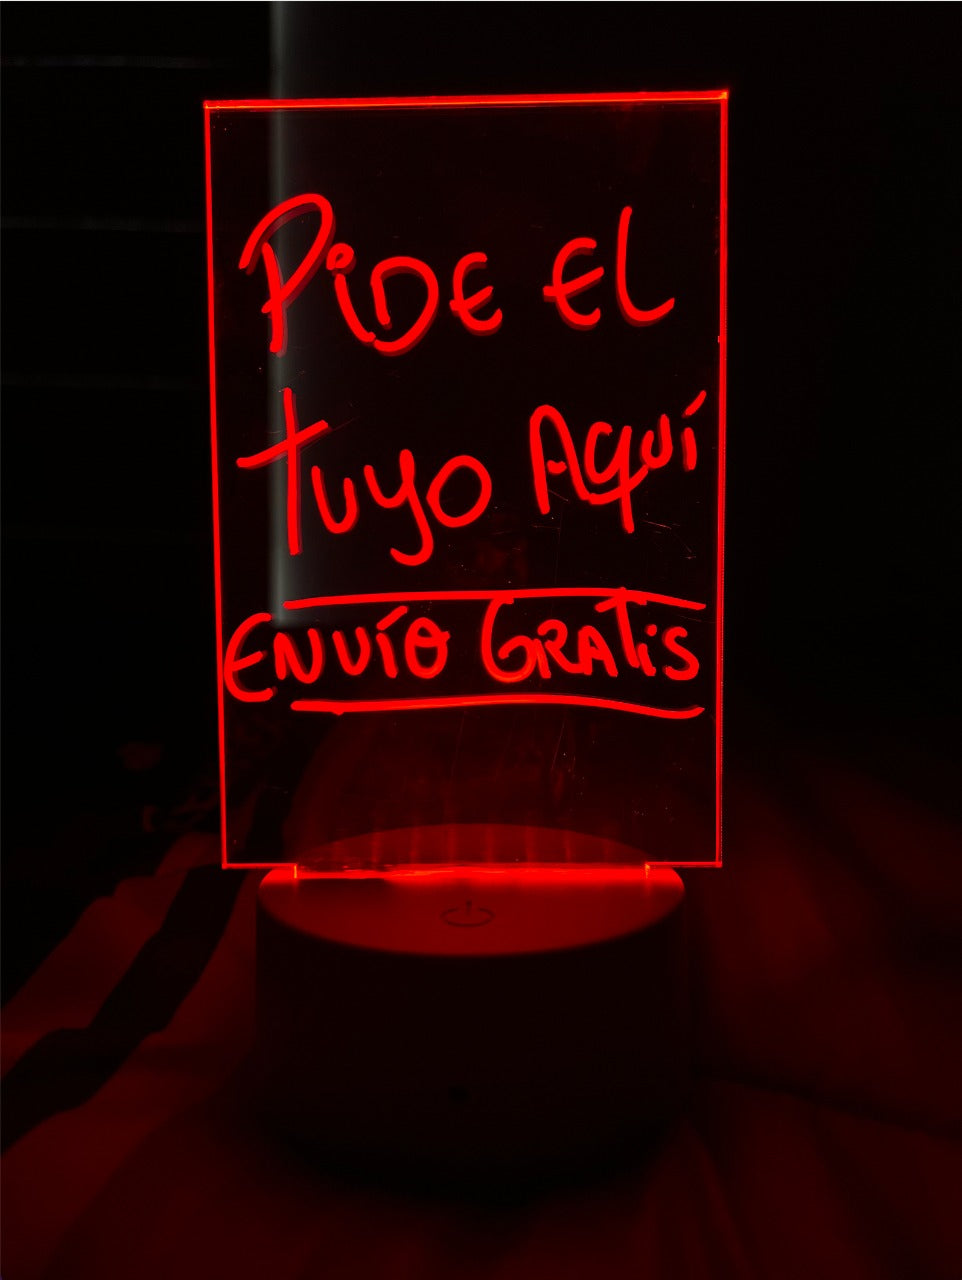 PiDE EL
tuyo AQuí
ENVíO GRATiS